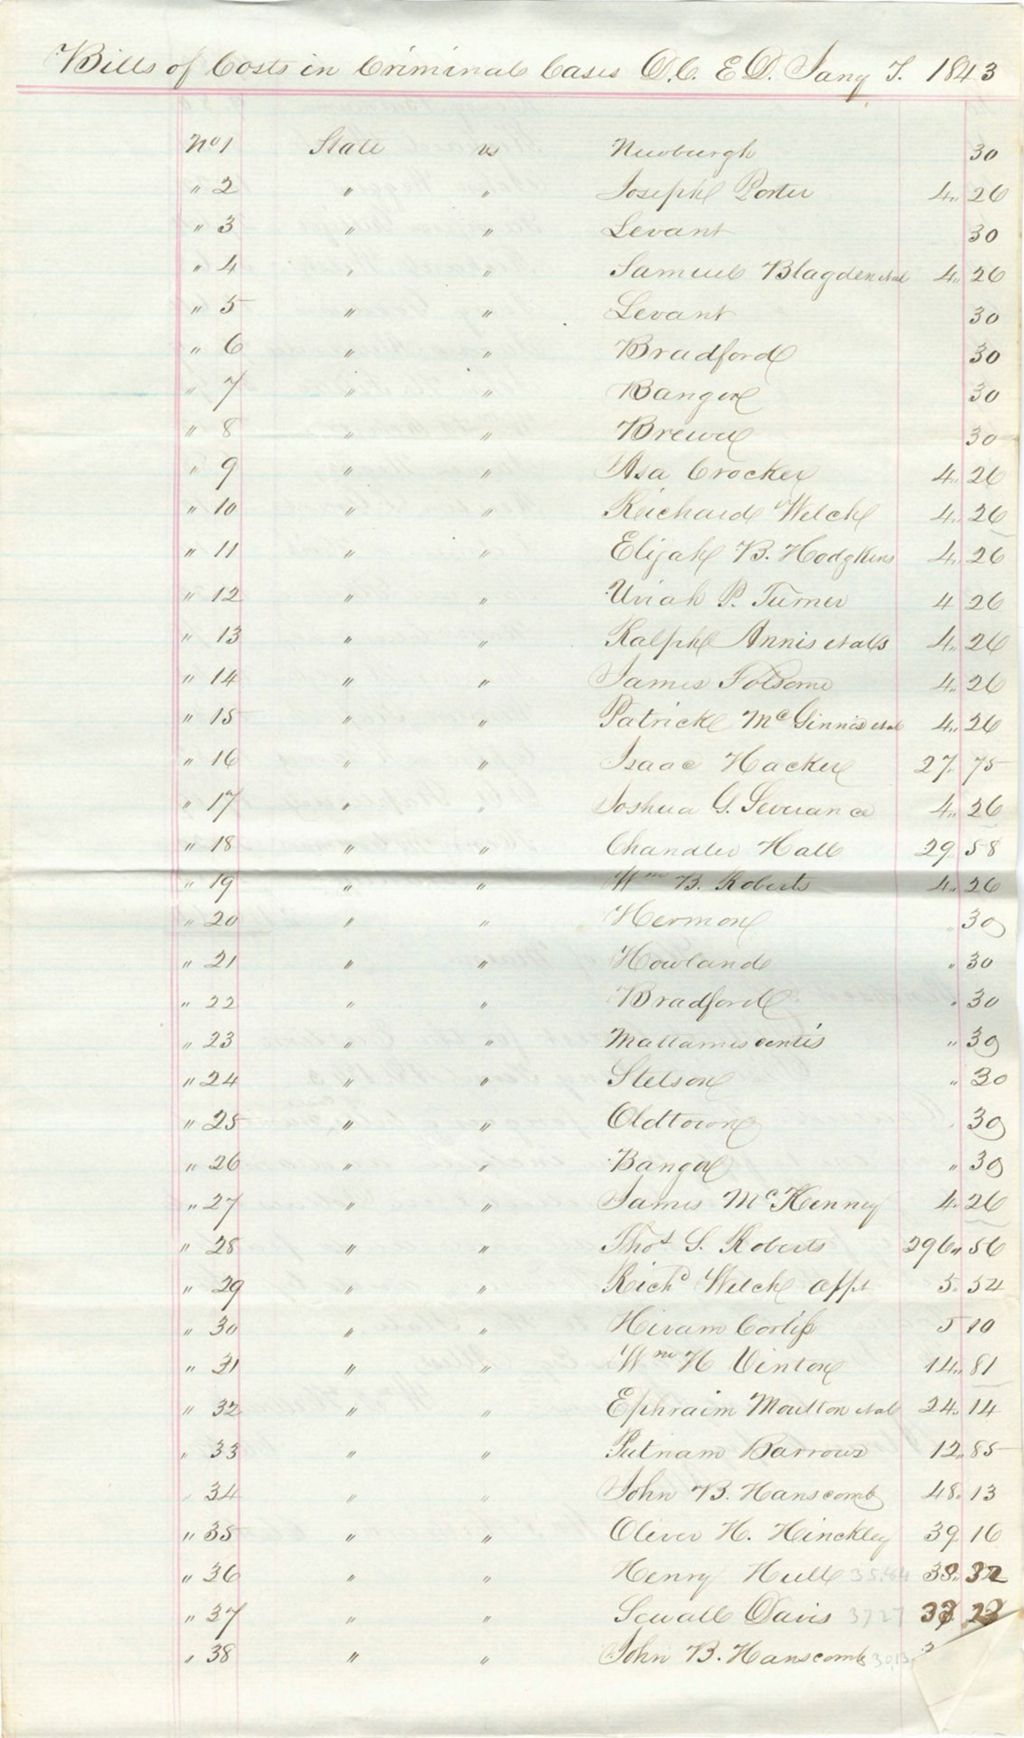 Bills of Costs in Criminal Cases D.C. E.D. Jany T. 1843
No 1 State vs Newburgh 30
" 2 " " Joseph Porter 4" 26
" 3 " " Levant 30
" 4 " " Samuel Blagden et al 4" 26
" 5 " " Levant 30
" 6 " " Bradford 30
" 7 " " Bangor 30
" 8 " " Brewer 30
" 9 " " Asa Crocker 4" 26
" 10 " " Richard Welch 4" 26
" 11 " " Elijah B. Hodgkins 4" 26
" 12 " " Uriah P. Turner 4 26
" 13 " " Ralph Annis et als 4" 26
" 14 " " James Folsome 4" 26
" 15 " " Patrick McGinnis et al 4" 26
" 16 " " Isaac Hacker 27. 75
" 17 " " Joshua G. Severance 4" 26
" 18 " " Chandler Hall 29 58
" 19 " " Wm B. Roberts 4" 26
" 20 " " Hermon " 30
" 21 " " Howland " 30
" 22 " " Bradford " 30
" 23 " " Mattamiscontis " 30
" 24 " " Stetson " 30
" 25 " " Oldtown " 30
" 26 " " Bangor " 30
" 27 " " James McKenney 4. 26
" 28 " " Thos S. Roberts 296" 56
" 29 " " Richd Welch appt 5. 54
" 30 " " Hiram Corliss 5 10
" 31 " " Wm H Vinton 14" 81
" 32 " " Ephraim Moulton et al 24. 14
" 33 " " Putnam Barrows 12. 85
" 34 " " John B. Hanscomb 48. 13
" 35 " " Oliver H. Hinckley 39. 16
" 36 " " Henry Hull 38. 32
" 37 " " Sewall Davis 3727
" 38 " " John B. Hanscomb